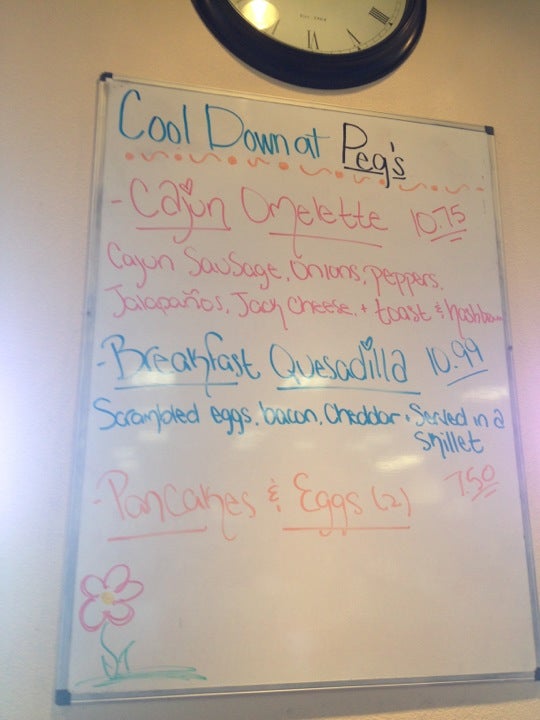 Cool Down at Peg's
- Cajun Omelette 10.75
Cajun Sausage, Onions, Peppers,
Jalapaños, Jack Cheese, + toast & hashbrown
- Breakfast Quesadilla 10.99
Scrambled eggs, bacon, Cheddar • Served in a
skillet
- Pancakes & Eggs (2) 7.50